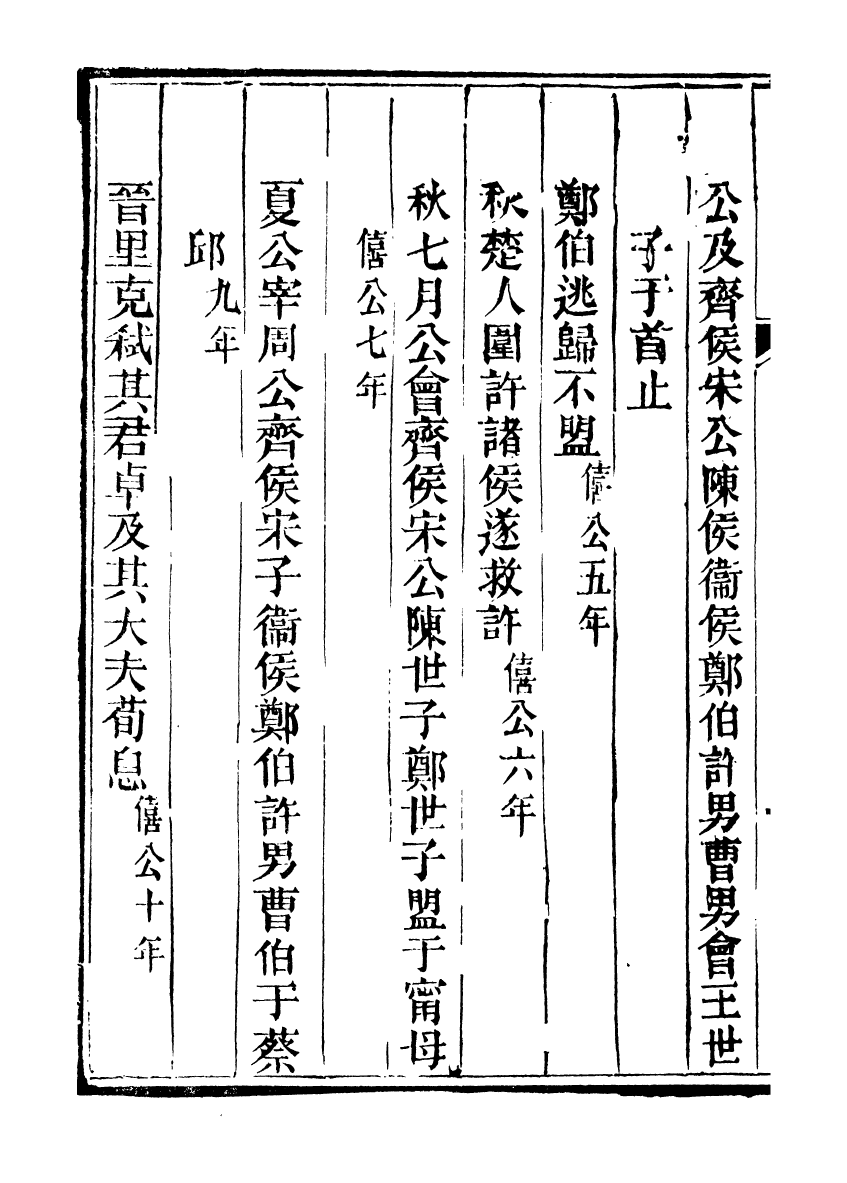 公及齊侯宋公陳侯衞侯鄭伯許男曹男會王世
子于首止
鄭伯逃歸不盟僖公五年
秋楚人圍許諸侯遂救許僖公六年
秋七月公會齊侯宋公陳世子鄭世子盟于甯母
僖公七年
夏公宰周公齊侯宋子衞侯鄭伯許男曹伯于蔡
邱九年
晉里克弑其君卓及其大夫荀息僖公十年